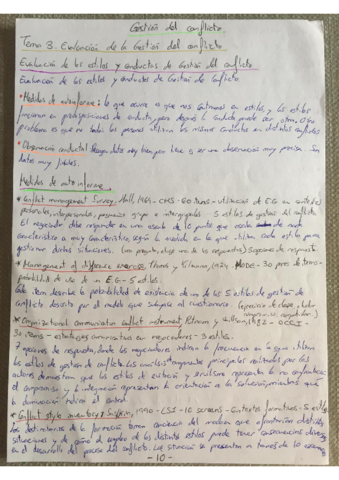 Gestión del conflicto.
Tema 3. Evaluación de la Gestión del conflicto
Evaluación de los estilos y conductas de Gestión del conflicto.
Evaluación de los estilos y conductas de Gestión de Conflicto
• Medidas de autoinforme: lo que ocurre es que nos centramos en estilos, y los estilos
en predisposiciones de conducta, pero después la conducta puede ser otra. Otro
problema es que no todas las personas utilizan las mismas conductas en distintos conflictos
• Observación conductual: hay que hacer una observación muy precisa. Son
datos muy fiables.
Medidas de auto informe
• Conflict management Survey, Hall, 1969 - CMS - 60 items - utilización de E.G en contextos
personales, interpersonales, grupo e intergrupales - 5 estilos de gestión del conflicto
El negociador debe responder en una escala de 10 puntos que de nada
característico a muy característico, según la medida en la que utiliza cada estilo para
gestionar distintas situaciones.
* Management of difference exercise, Thomas y Kilmann, 1974 MODE - 30 pares de items -
probabilidad de uso de un E.G - 5 estilos.
Cada item describe la probabilidad de existencia de uno de los 5 estilos de gestión de
conflicto descrito por el modelo que subyace al cuestionario.
* Organizational communication conflict instrument, Putnam y Wilson, 1982 - OCCI -
30 items - estrategias comunicativas en negociadores - 3 estilos.
7 opciones de respuesta, donde los negociadores indican la frecuencia en la que utilizan
los estilos de gestión de conflicto. Los análisis principales realizados por los
autores demuestran que los estilos de evitación y representan la no confrontación,
el compromiso y la integración representan la orientación a la solución mientras que
la dominación indica el control.
* Conflict style inventory, 1990 - CSI - 10 - Contextos formativos - 5 estilos
Los destinatarios de la formación toman conciencia del modo que afrontan distintas
situaciones y de cómo el empleo de los distintos estilos puede tener consecuencias diversas
en el desarrollo del proceso del conflicto. Las situaciones se presentan a través de 10
- 10 -